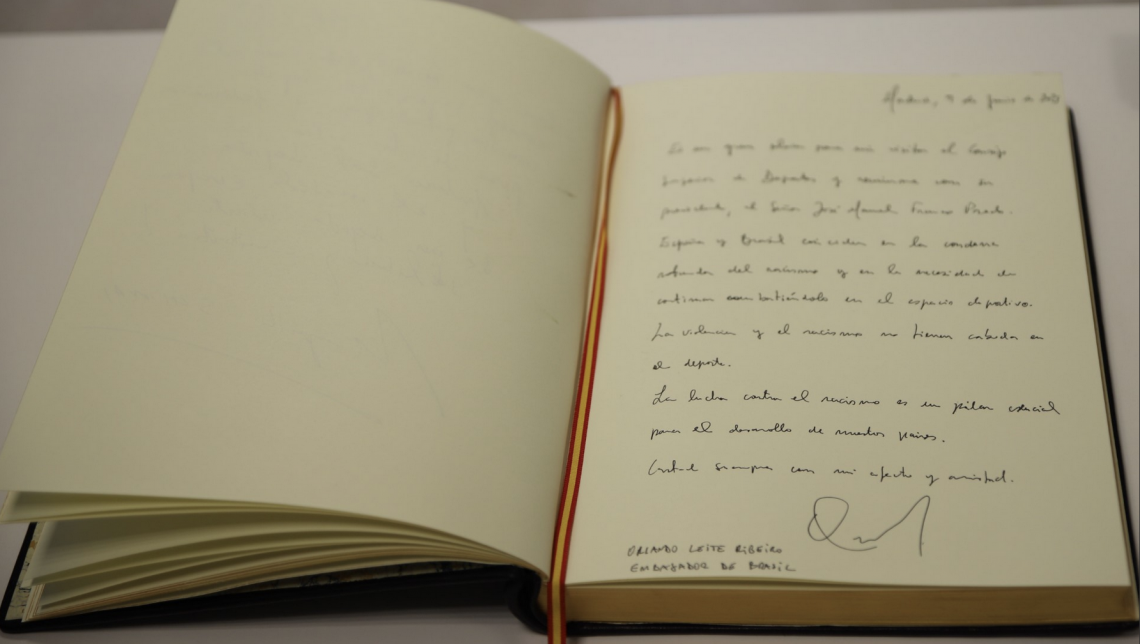 Madrid, 9 de junio de
Es un gran placer para mi visitar el Consejo
Superior de Deportes y reunirme con su
presidente, el Señor José Manuel Franco Pardo.
España y Brasil coinciden en la condena
rotunda del racismo y en la necesidad de
continuar combatiéndolo en el espacio deportivo.
La violencia y el racismo no tienen cabida en
el deporte.
La lucha contra el racismo es un pilar esencial
para el desarrollo de nuestros países.
siempre con mi afecto y amistad.
ORLANDO LEITE RIBEIRO
EMBAJADOR DE BRASIL